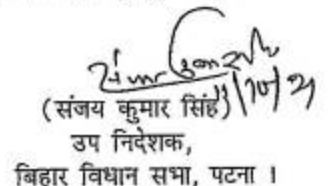 (संजय कुमार सिंह)
उप निदेशक,
बिहार विधान सभा, पटना ।